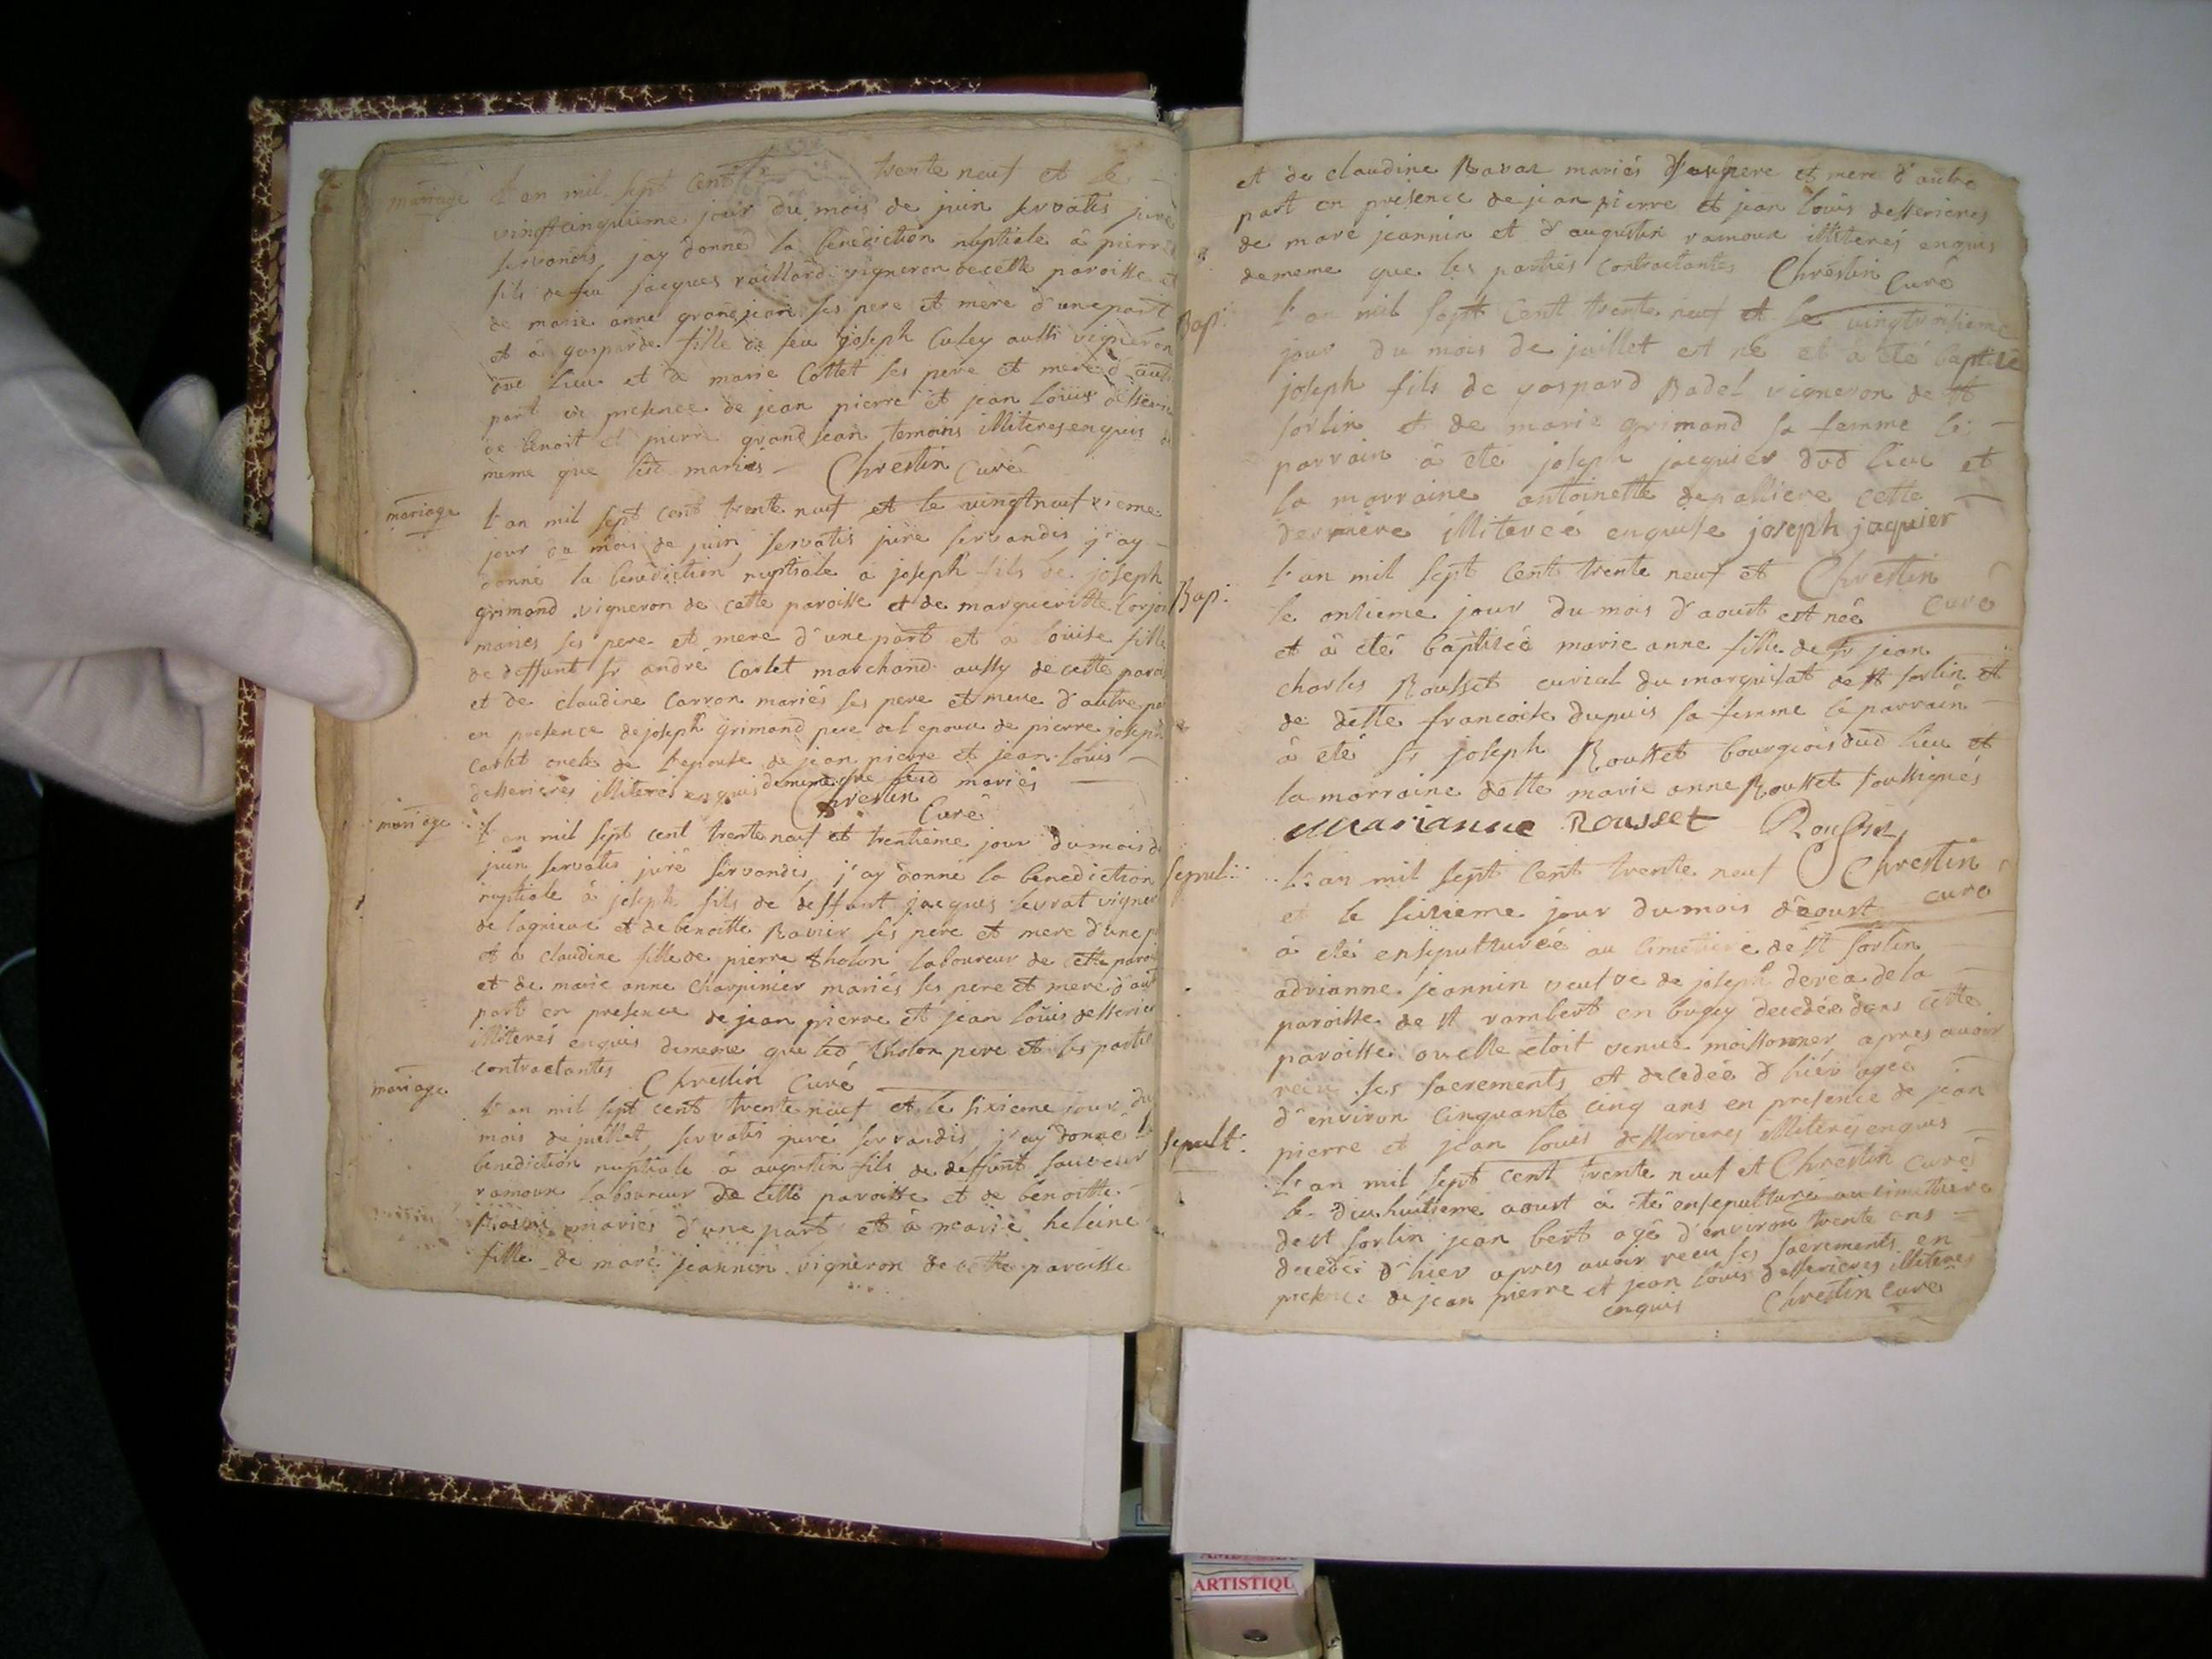 mariage
L'an mil sept cent trente neuf et le
vingtcinquieme jour du mois de juin servatis jure
servandis j'ay donné la benediction nuptiale à pierre
fils de feu jacques raillard vigneron de cette paroisse et
de marie anne grandjean ses pere et mere d'unepart
et à gasparde fille de feu joseph Cusey aussi vigneron
dud lieu et de marie Cottet ses pere et mere d'autre
part en presence de jean pierre et jean louis desserieres
de benoit et pierre grandjean temoins illiteres enquis de
meme que lesd mariés Chrestin Curé
mariage
L'an mil sept cent trente neuf et le vingtneufvieme
jour du mois de juin servatis jure servandis j'ay
donné la benediction nuptiale à joseph fils de joseph
grimand vigneron de cette paroisse et de margueritte Corjon
mariés ses pere et mere d'une part et à louise fille
de deffunt sr andré Carlet marchand aussy de cette parois
et de claudine Carron mariés ses pere et mere d'autre pa
en presence de joseph grimand pere del epoux de pierre joseph
Carlet oncle de l'epouse de jean pierre et jean louis
desserieres illiterés enquis dememe que lesd mariés
Chrestin Curé
mariage
L'an mil sept cent trente neuf et trentieme jour dumois de
juin servatis jure servandis j'ay donné la benediction
nuptiale à joseph fils de deffunt jacques levrat vigner
de lagnieux et de benoitte Ravier ses pere et mere d'une p
et à claudine fille de pierre tholon laboureur de cette parois
et de marie anne Charpinier mariés ses pere et mere d'aut
part en presence de jean pierre et jean louis desserieres
illiterés enquis dememe que led tholon pere et les partie
contractantes Chrestin Curé
mariage
L'an mil sept cent trente neuf et le sixieme jour du
mois de juillet servatis jure servandis j'ay donné la
benediction nuptiale à augustin fils de deffunt sauveur
ramoux laboureur de cette paroisse et de benoitte
mariés d'une part et à marie heleine
fille de marc jeannin vigneron de cette paroisse
et de claudine Ravaz mariés ses pere et mere d'autre
part en presence de jean pierre et jean louis desserieres
de marc jeannin et d'augustin ramoux illiterés enquis
dememe que les parties contractantes Chrestin Curé
Bap:
L'an mil sept cent trente neuf et le vingtunsieme
jour du mois de juillet est né et à eté baptisé
joseph fils de gaspard Badel vigneron de st
sorlin et de marie grimand sa femme le
parrain à eté joseph jacquier dud lieu et
la marraine antoinette depalliere cette
derniere illiterée enquise joseph jaquier
Chrestin Curé
Bap:
L'an mil sept cent trente neuf et
le onsieme jour du mois d'aoust est née
et à eté baptisée marie anne fille de sr jean
charles Rousset curial du marquisat de st sorlin et
de delle francoise dupuis sa femme le parrain
à eté sr joseph Rousset bourgeois dud lieu et
la marraine delle marie anne Rousset soussignés
Marianne Rousset Rousset
Chrestin curé
sepul:
L'an mil sept cent trente neuf
et le sixieme jour dumois d'aoust
à eté ensepulturée au cimetiere de st sorlin
adrianne jeannin veufve de joseph derea de la
paroisse de st rambert en bugey decedée dans cette
paroisse ou elle etoit venue moissonner apres avoir
recu ses sacrements et decedée d'hier agée
d'environ cinquante cinq ans en presence de jean
pierre et jean louis desserieres illiterés enquis
Chrestin Curé
sepult:
L'an mil sept cent trente neuf et
le dixhuitieme aoust à eté ensepulturé au cimettiere
de st sorlin jean bert agé d'environ trente ans
decedé d'hier apres avoir recu ses sacrements en
presence de jean pierre et jean louis desserieres illiteres
enquis Chrestin Curé
ARTISTIQU